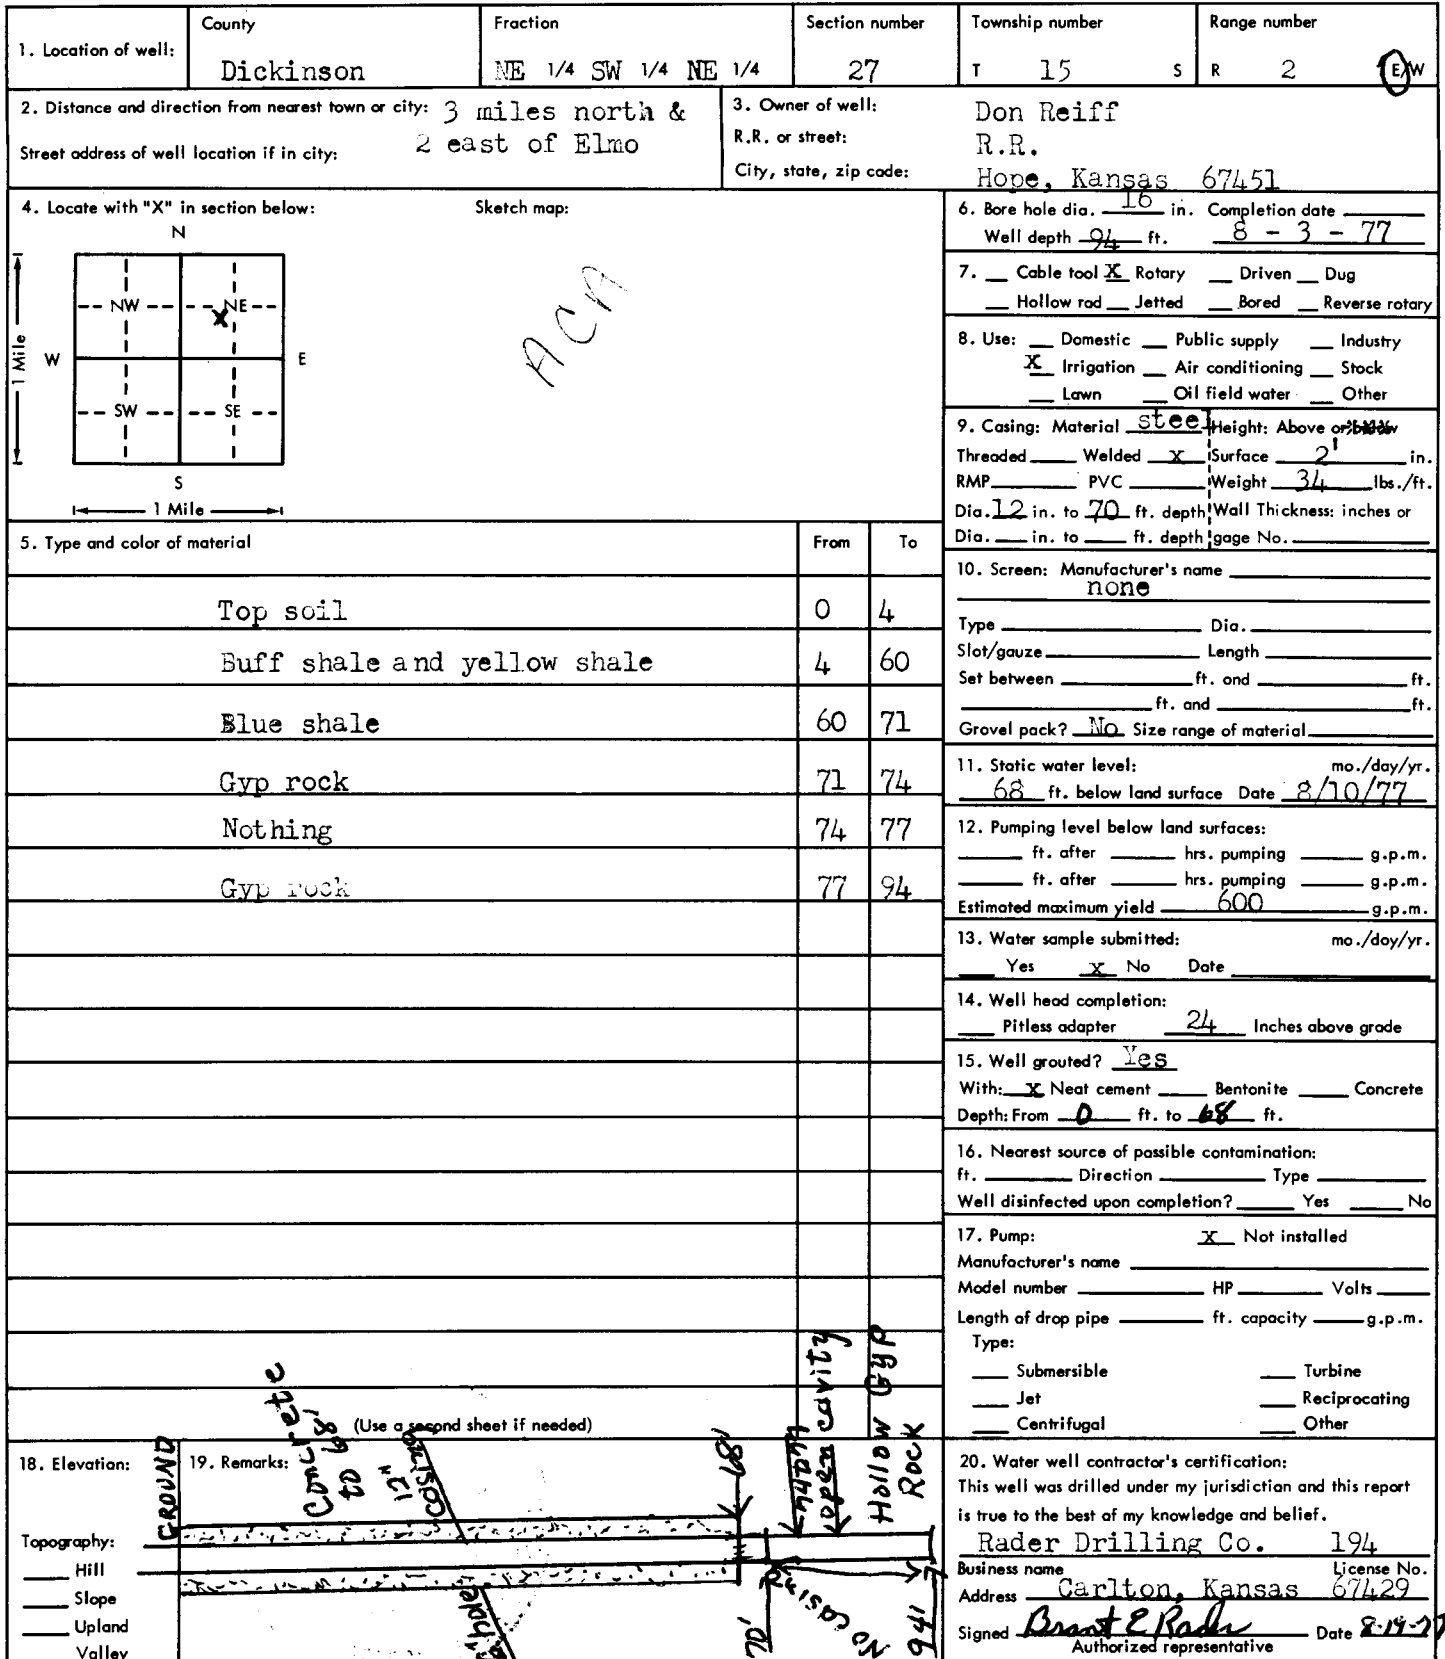 1. Location of well:
County
Dickinson
Fraction
NE 1/4 SW 1/4 NE 1/4
Section number
27
Township number
T 15 S
Range number
R 2 E/W
2. Distance and direction from nearest town or city: 3 miles north &
2 east of Elmo
Street address of well location if in city:
3. Owner of well: Don Reiff
R.R. or street: R.R.
City, state, zip code: Hope, Kansas 67451
4. Locate with "X" in section below:
Sketch map:
N
NW NE
X
W E
SW SE
S
1 Mile
1 Mile
ACA
5. Type and color of material From To
Top soil 0 4
Buff shale and yellow shale 4 60
Blue shale 60 71
Gyp rock 71 74
Nothing 74 77
Gyp rock 77 94
(Use a second sheet if needed)
6. Bore hole dia. 16 in. Completion date
Well depth 94 ft. 8 - 3 - 77
7. Cable tool X Rotary Driven Dug
Hollow rod Jetted Bored Reverse rotary
8. Use: Domestic Public supply Industry
X Irrigation Air conditioning Stock
Lawn Oil field water Other
9. Casing: Material steel Height: Above or below
Threaded Welded X Surface 2' in.
RMP PVC Weight 34 lbs./ft.
Dia. 12 in. to 70 ft. depth Wall Thickness: inches or
Dia. in. to ft. depth gage No.
10. Screen: Manufacturer's name
none
Type Dia.
Slot/gauze Length
Set between ft. and ft.
ft. and ft.
Gravel pack? No Size range of material
11. Static water level: mo./day/yr.
68 ft. below land surface Date 8/10/77
12. Pumping level below land surfaces:
ft. after hrs. pumping g.p.m.
ft. after hrs. pumping g.p.m.
Estimated maximum yield 600 g.p.m.
13. Water sample submitted: mo./day/yr.
Yes X No Date
14. Well head completion:
Pitless adapter 24 Inches above grade
15. Well grouted? Yes
With: X Neat cement Bentonite Concrete
Depth: From 0 ft. to 68 ft.
16. Nearest source of possible contamination:
ft. Direction Type
Well disinfected upon completion? Yes No
17. Pump: X Not installed
Manufacturer's name
Model number HP Volts
Length of drop pipe ft. capacity g.p.m.
Type:
Submersible Turbine
Jet Reciprocating
Centrifugal Other
18. Elevation:
Topography:
Hill
Slope
Upland
Valley
19. Remarks:
GROUND
Concrete
to 68'
12"
casing
68'
open cavity
Hollow Gyp
Rock
hole
70'
No casing
94'
20. Water well contractor's certification:
This well was drilled under my jurisdiction and this report
is true to the best of my knowledge and belief.
Rader Drilling Co. 194
Business name License No.
Address Carlton, Kansas 67429
Signed Brant E Rader Date 8-19-77
Authorized representative